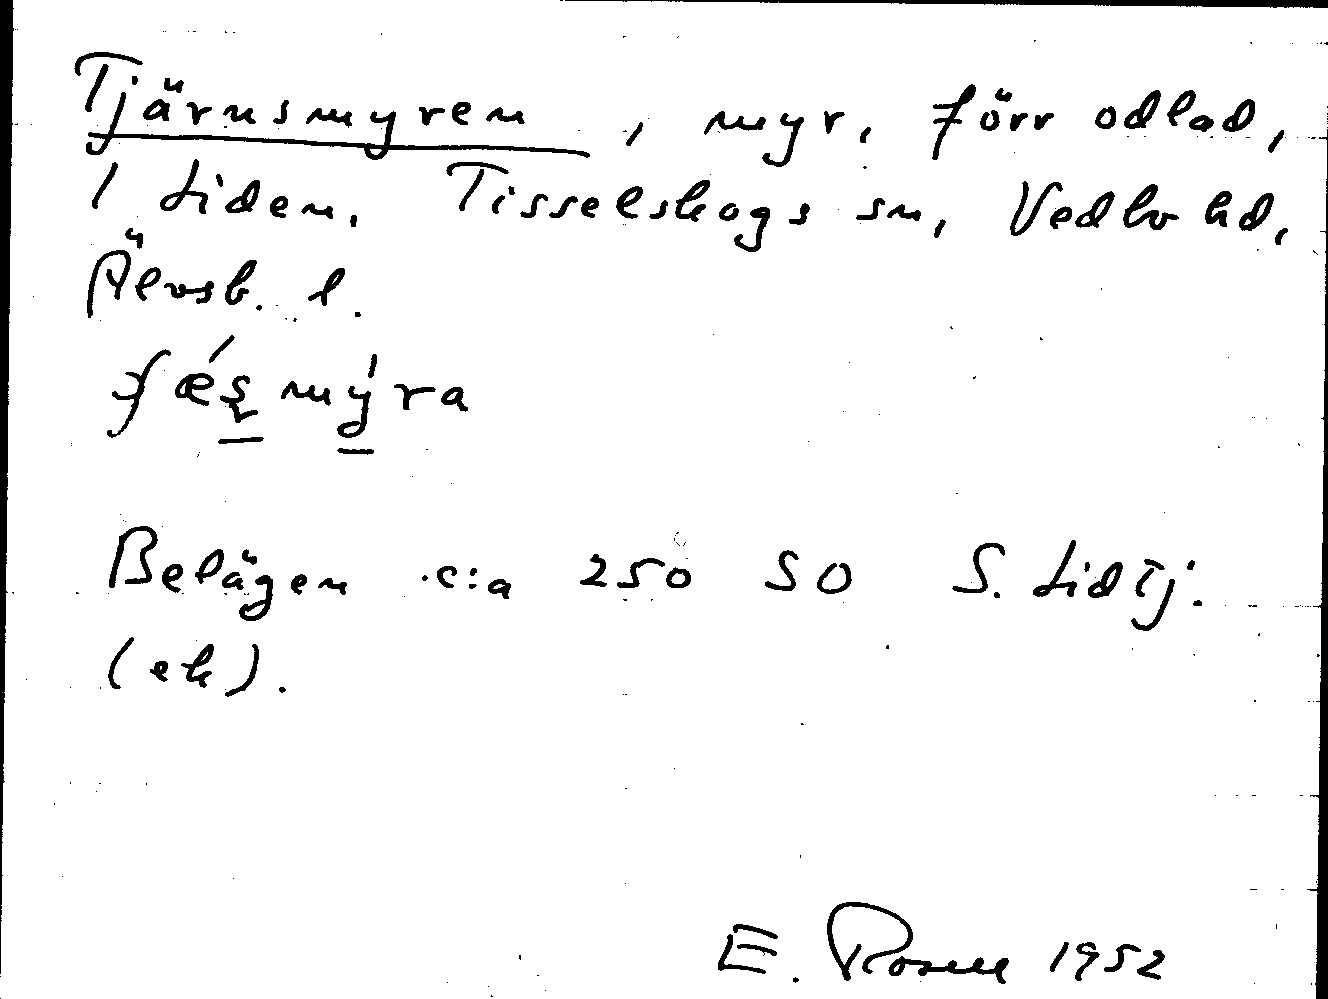 Tjärnsmyren, myr, förr odlad,
1 Liden, Tisselskogs sn, Vedbo hd,
Älvsb. l.
Belägen c:a 250 SO S. Lidtj.
(ek).
E. Rosell 1952